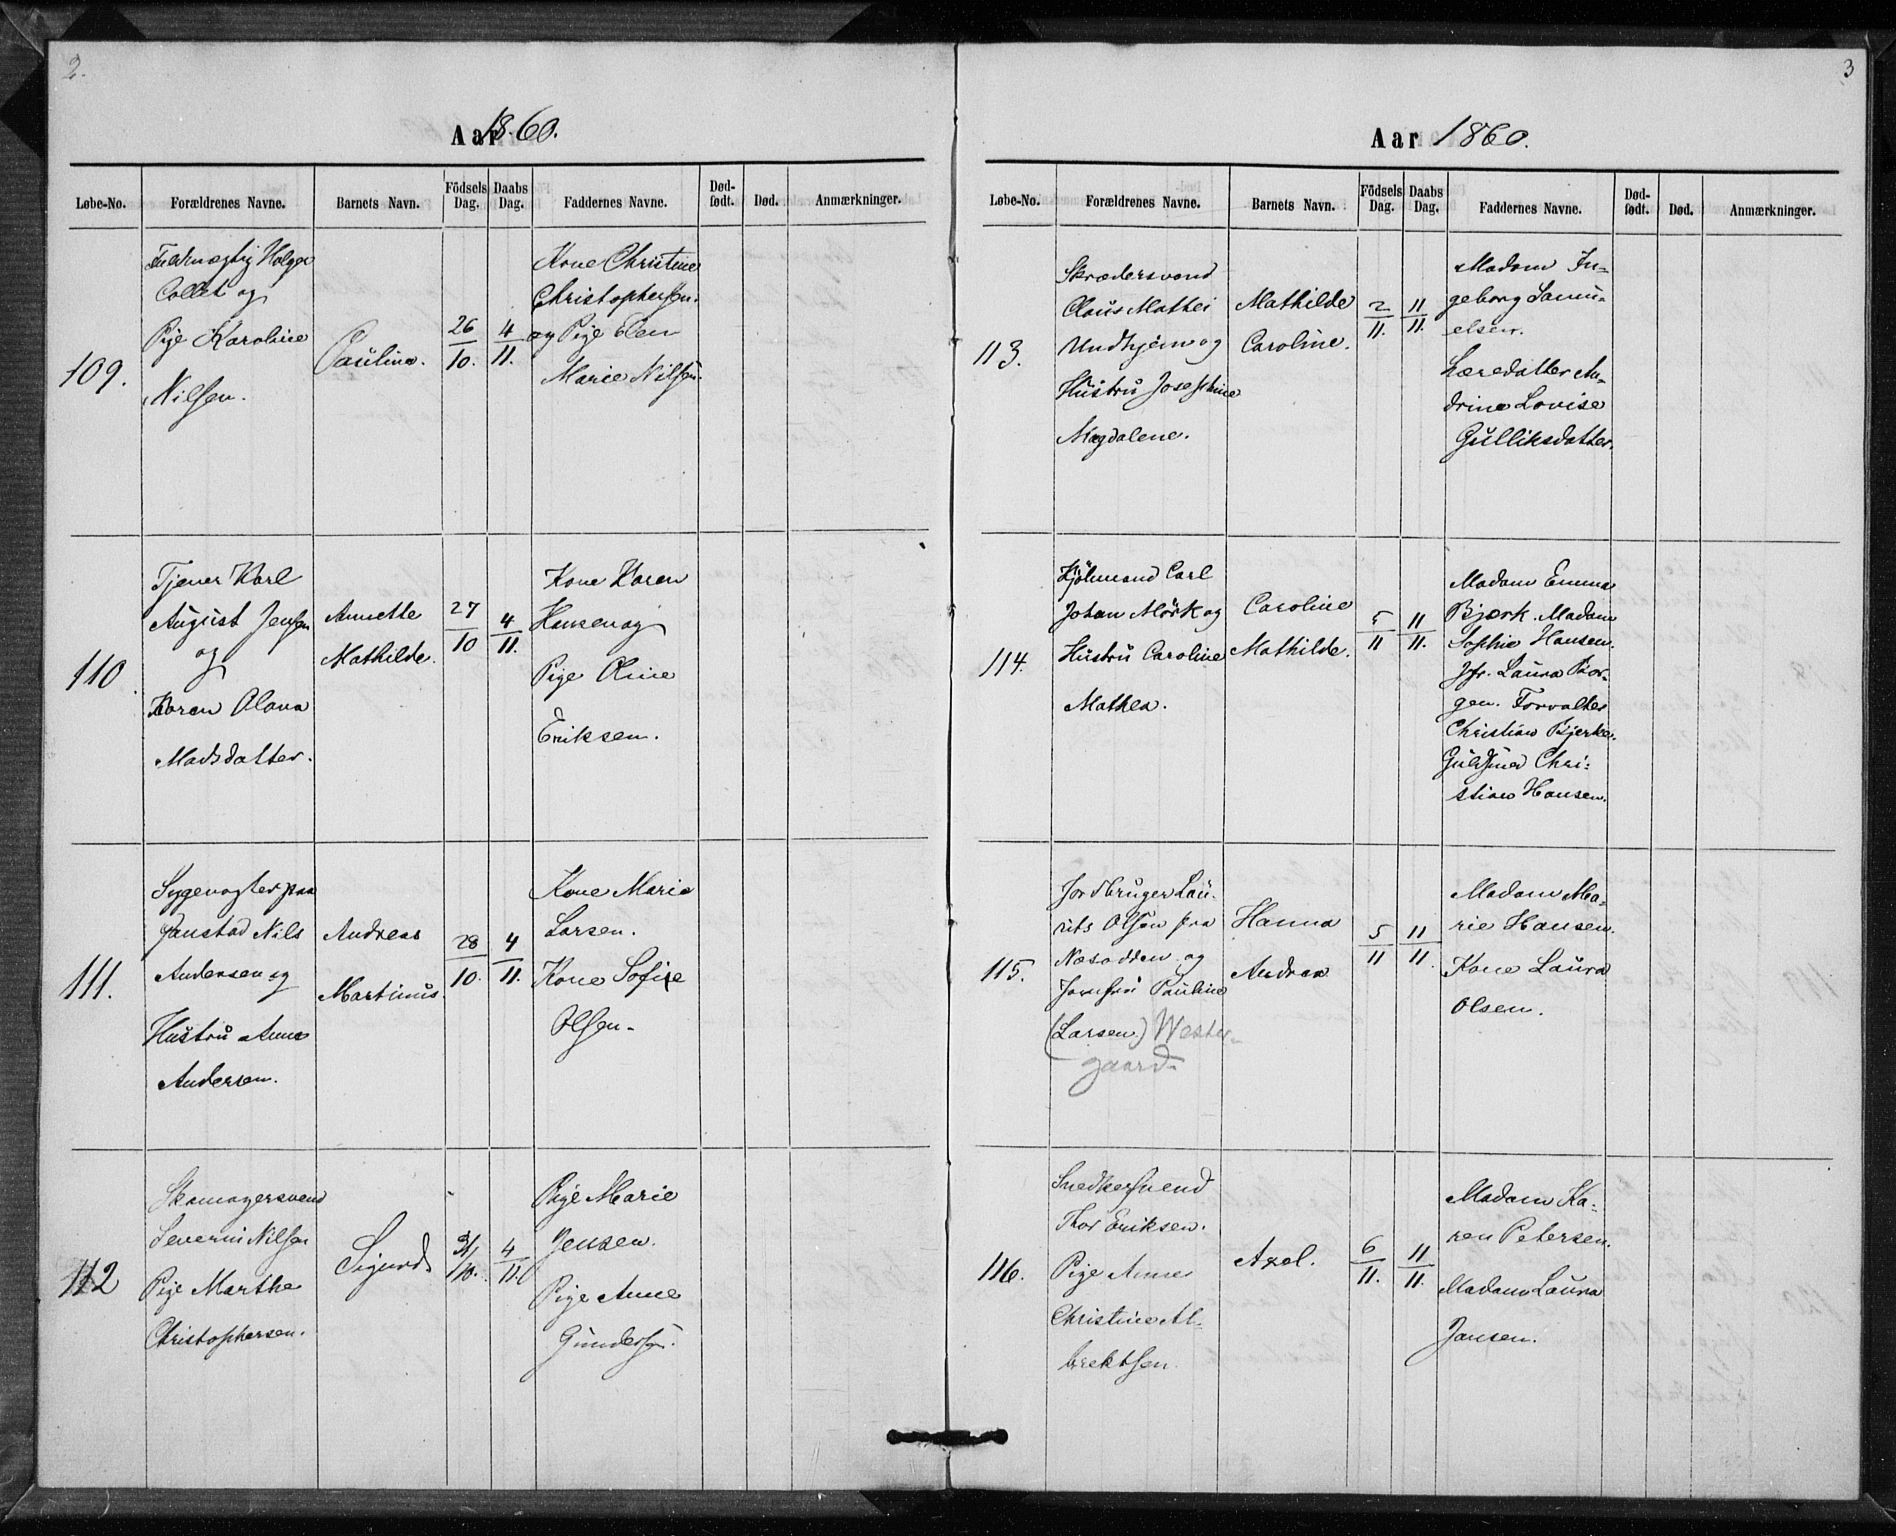 2.
Aar 1860.
Løbe-No. Forældrenes Navne. Barnets Navn. Födsels Dag. Daabs Dag. Faddernes Navne. Død-födt. Død. Anmærkninger.
109.
Fuldmægtig Holger
Collet og
Pige Karoline
Nilsen.
Pauline.
26/10.
4/11.
Kone Christine
Christophersen.
og Pige Elen
Marie Nilsen.
110
Tjener Karl
August Jensen
og
Karen Olava
Madsdatter.
Annette
Mathilde.
27/10
4/11.
Kone Karen
Hansen og
Pige Oline
Eriksen.
111.
Sygevogter paa
Gaustad Nils
Andersen og
Hustru Anne
Andersen.
Andreas
Martinus.
28/10.
4/11.
Kone Marie
Larsen.
Kone Sofie
Olsen.
112
Skomagersvend
Severin Nilsen
Pige Marthe
Christophersen.
Sigurd.
31/10.
4/11.
Pige Marie
Jensen.
Pige Anne
Gundersen.
3
Aar 1860.
Løbe-No. Forældrenes Navne. Barnets Navn. Födsels Dag. Daabs Dag. Faddernes Navne. Død-födt. Død. Anmærkninger.
113.
Skrædersvend
Claus Mathei
Undhjem og
Hustru Josephine
Magdalene.
Mathilde
Caroline.
2/11.
11/11.
Madam In-
geborg Samu-
elsen.
Læredatter An-
drine Lovise
Gulliksdatter.
114.
Kjölmand Carl
Johan Mörk og
Hustru Caroline
Mathea.
Caroline
Mathilde.
5/11
11/11.
Madam Emma
Bjærk. Madam
Sophie Hansen.
Jfr. Laura Bor-
gen. Forvalter
Christian Bjerke.
Guldsmed Chri-
stian Hansen.
115.
Jordbruger Lau-
rits Olsen fra
Næsodden og
Jomfru Pauline
(Larsen.) Wester-
gaard
Hanna
Andrea
5/11
11/11.
Madam Ma-
rie Hansen.
Kone Laura
Olsen.
116.
Snedkersvend
Thor Eriksen.
Pige Anne
Christine Al-
brektsen.
Axel.
6/11.
11/11.
Madam Ka-
ren Petersen.
Madam Laura
Jansen.